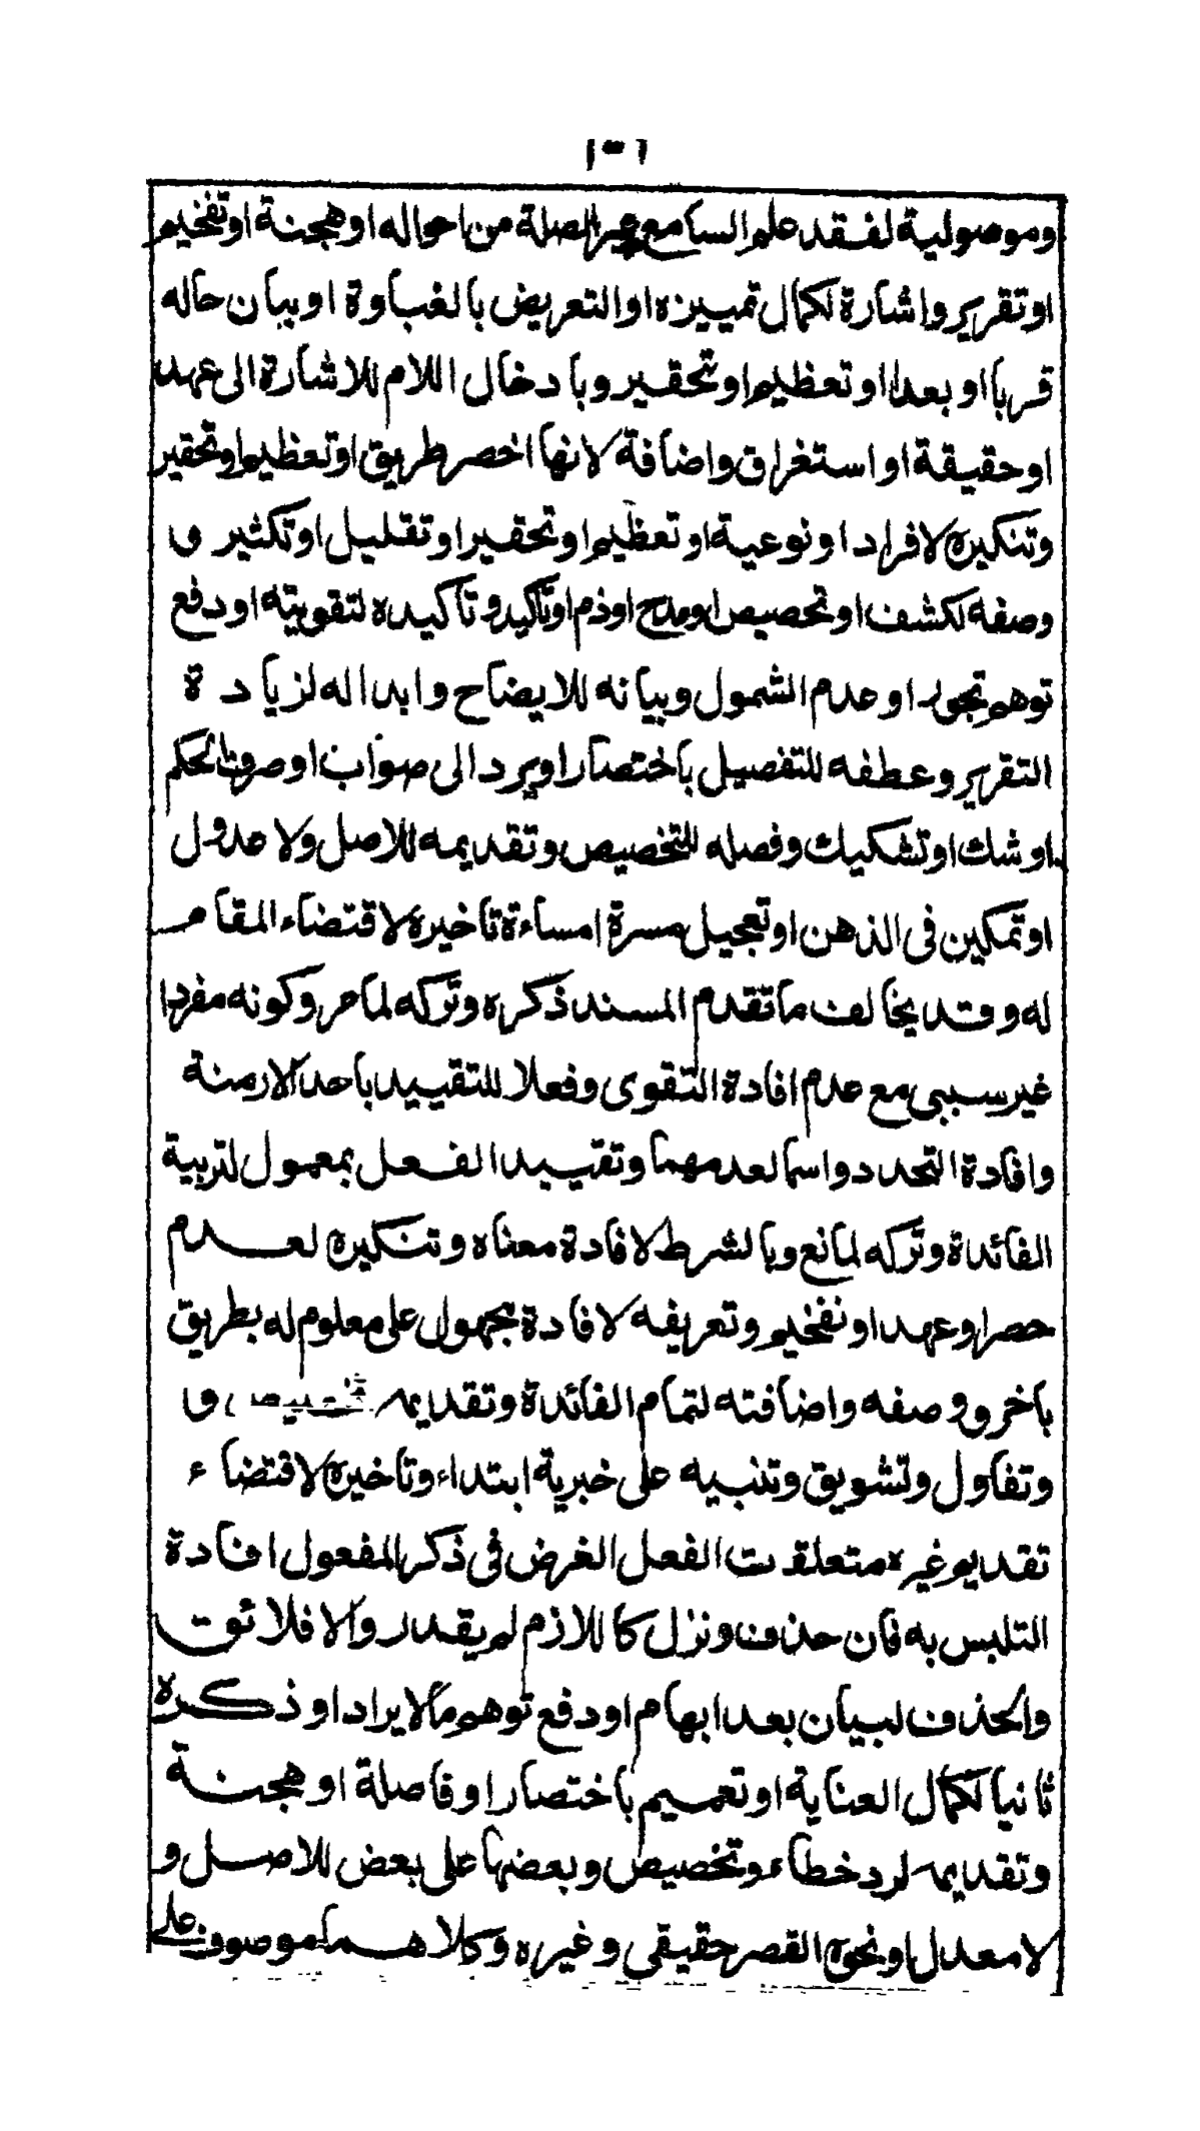 ١٣٦
وموصولية لفقد علم السامع غير الصلة من احواله او هجنة او تفخيم
او تقرير واشارة لكمال تمييزه او التعريض بالغباوة او بيان حاله
قربا او بعدا او تعظيم او تحقير وبادخال اللام للاشارة الى عهد
او حقيقة او استغراق واضافة لانها اخصر طريق او تعظيم او تحقير
وتنكيره لافراد او نوعية او تعظيم او تحقير او تقليل او تكثير و
وصفه لكشف او تخصيص او مدح او ذم او تاكيد وتاكيده لتقويته او دفع
توهم تجوز او عدم الشمول وبيانه للايضاح وابداله لزيادة
التقرير وعطفه للتفصيل باختصار او يرد الى صواب او صرف الحكم
او شك او تشكيك وفصله للتخصيص وتقديمه للاصل ولا عدول
او تمكين فى الذهن او تعجيل مسرة امساءة تاخيره لاقتضاء المقام
له وقد يخالف ما تقدم المسند ذكره وتركه لما مر وكونه مفردا
غير سببى مع عدم افادة التقوى وفعلا للتقييد باحد الازمنة
وافادة التجدد واسما لعدمهما وتقييد الفعل بمعمول لتربية
الفائدة وتركه لمانع وبالشرط لافادة معناه وتنكيره لعدم
حصر او عهد او تفخيم وتعريفه لافادة مجهول على معلوم له بطريق
باخر ووصفه واضافته لتمام الفائدة وتقديمه تخصيص و
وتفاول وتشويق وتنبيه على خبرية ابتداء وتاخيره لاقتضاء
تقديم غيره متعلقت الفعل الغرض فى ذكر المفعول افادة
التلبس به فان حذف ونزل كاللازم لم يقدر والا فلائق
والحذف لبيان بعد ابهام او دفع توهم مالا يراد او ذكره
ثانيا لكمال العناية او تعميم باختصار او فاصلة او هجنة
وتقديمه لرد خطاء وتخصيص وبعضها على بعض للاصل و
لا معدل او نحوه القصر حقيقى وغيره وكلاهما موصوف على